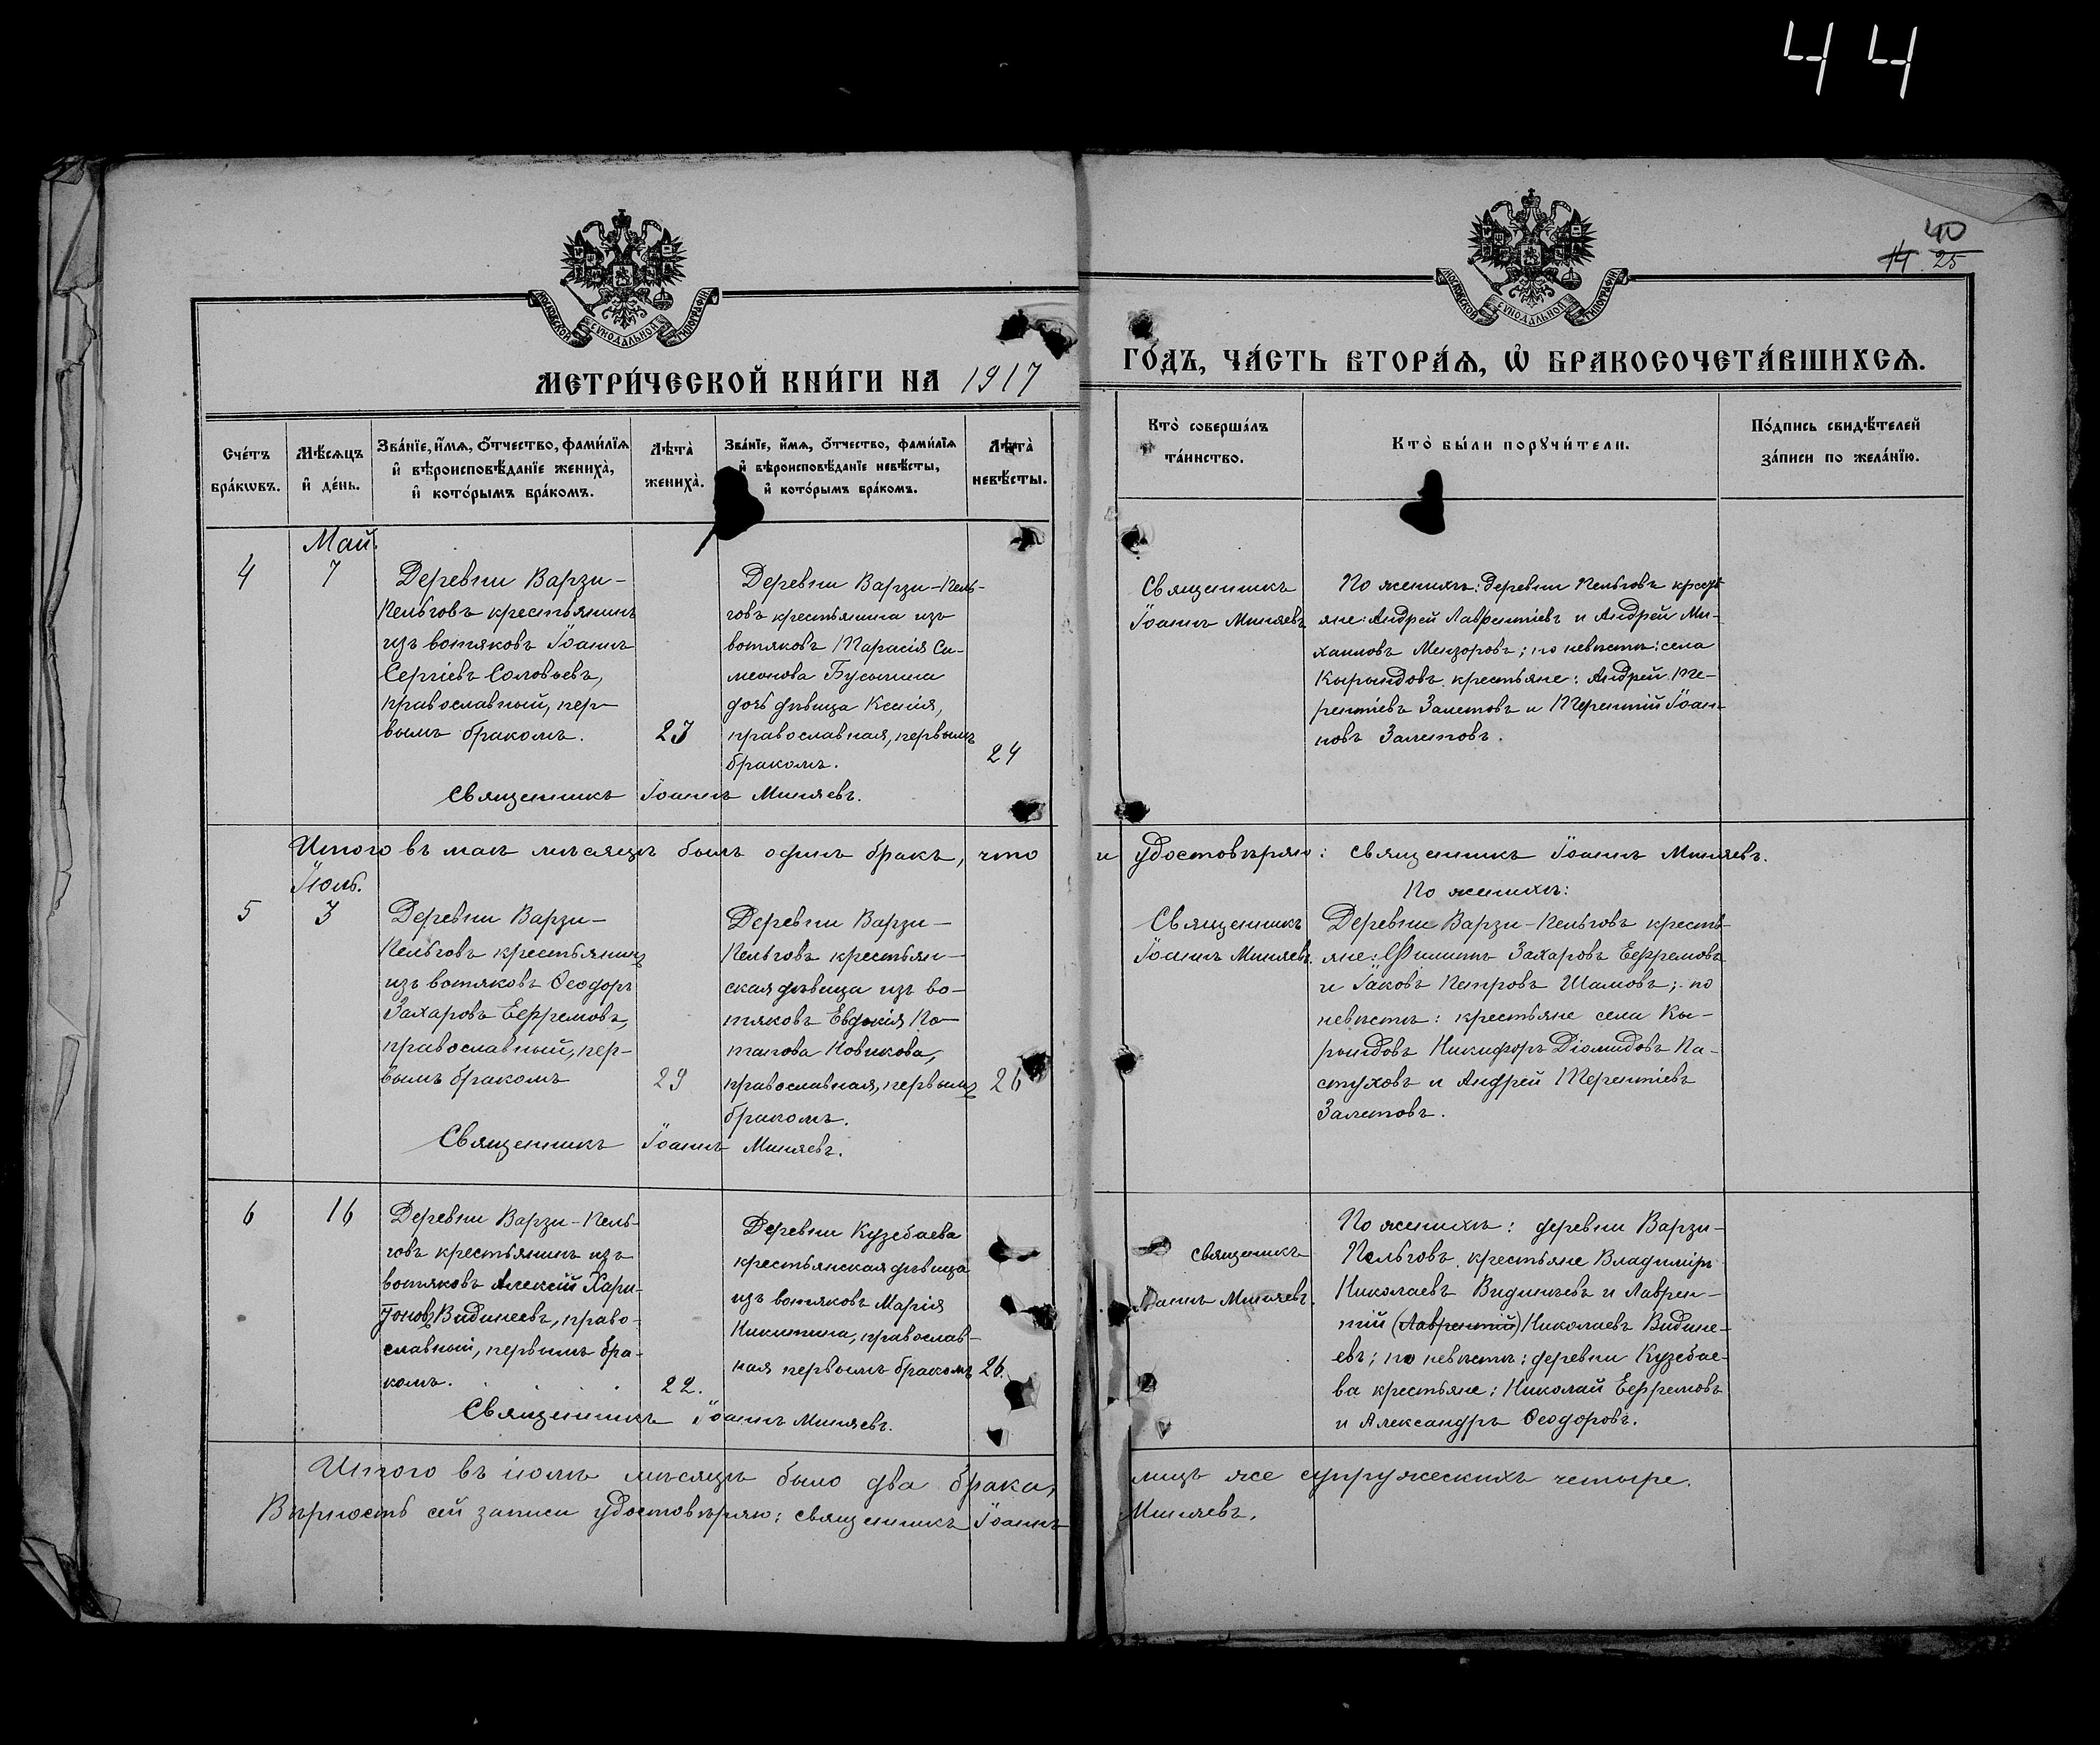 44
40
14 25
МОСКОВСКОЙ СѴНОДАЛЬНОЙ ТИПОГРАФІИ
МОСКОВСКОЙ СѴНОДАЛЬНОЙ ТИПОГРАФІИ
МЕТРИ́ЧЕСКОЙ КНИ́ГИ НА 1917
ГО́ДЪ, ЧА́СТЬ ВТОРА́Ѧ, Ѡ҆ БРАКОСОЧЕТА́ВШИХСѦ.
Сче́тъ
бра́кѡвъ.
Мѣ́сѧцъ
и҆ де́нь.
Зва́нїе, и҆́мѧ, ѻ҆́тчество, фами́лїѧ
и҆ вѣроисповѣ́данїе жениха̀,
и҆ кото́рымъ бра́комъ.
Лѣта̀
жениха̀.
Зва́нїе, и҆́мѧ, ѻ҆́тчество, фами́лїѧ
и҆ вѣроисповѣ́данїе невѣ́сты,
и҆ кото́рымъ бра́комъ.
Лѣта̀
невѣ́сты.
Кто̀ соверша́лъ
та́инство.
Кто̀ бы́ли порꙋчи́тели.
По́дпись свидѣ́телей
за́писи по жела́нїю.
Май.
4
7
Деревни Варзи-
Пельговъ крестьянинъ
изъ вотяковъ Іоаннъ
Сергіевъ Соловьевъ,
православный, пер-
вымъ бракомъ.
23
Деревни Варзи-Пель-
говъ крестьянина изъ
вотяковъ Парасія Си-
меонова Бусыгина
дочь дѣвица Ксенія,
православная, первымъ
бракомъ.
24
Священникъ Іоаннъ Миняевъ.
Священникъ
Іоаннъ Миняевъ
По женихѣ: деревни Пельговъ крестья
яне: Андрей Лаврентіевъ и Андрей Ми-
хаиловъ Мензоровъ; по невѣстѣ: села
Кырындовъ крестьяне: Андрей Те-
рентіевъ Залетовъ и Терентій Іоан-
новъ Залетовъ.
Итого въ маѣ мѣсяцѣ былъ одинъ бракъ, что и удостовѣряю: священникъ Іоаннъ Миняевъ.
Іюль.
5
3
Деревни Варзи-
Пельговъ крестьянинъ
изъ вотяковъ Ѳеодоръ
Захаровъ Ефремовъ,
православный, пер-
вымъ бракомъ
29
Деревни Варзи-
Пельговъ крестьян-
ская дѣвица изъ во-
тяковъ Евдокія По-
тапова Новикова,
православная, первымъ
бракомъ.
26
Священникъ Іоаннъ Миняевъ.
Священникъ
Іоаннъ Миняевъ.
По женихѣ:
Деревни Варзи-Пельговъ кресть-
яне: Филиппъ Захаровъ Ефремовъ
и Іаковъ Петровъ Шамовъ; по
невѣстѣ: крестьяне села Кы-
рындовъ Никифоръ Діомидовъ Па-
стуховъ и Андрей Терентіевъ
Залетовъ.
6
16
Деревни Варзи-Пель-
говъ крестьянинъ изъ
вотяковъ Алексій Хари-
тоновъ Видинеевъ, право-
славный, первымъ бра-
комъ.
22.
Деревни Кузебаева
крестьянская дѣвица
изъ вотяковъ Марія
Никитина, православ-
ная первымъ бракомъ
26.
Священникъ Іоаннъ Миняевъ.
священникъ
Іоаннъ Миняевъ.
По женихѣ: деревни Варзи-
Пельговъ крестьяне Владиміръ
Николаевъ Видинѣевъ и Лаврен-
тій (Лаврентій) Николаевъ Видине-
евъ; по невѣстѣ: деревни Кузебае-
ва крестьяне: Николай Ефремовъ
и Александръ Ѳеодоровъ.
Итого въ іюлѣ мѣсяцѣ было два брака, лицъ же супружескихъ четыре.
Вѣрность сей записи удостовѣряю: священникъ Іоаннъ Миняевъ.